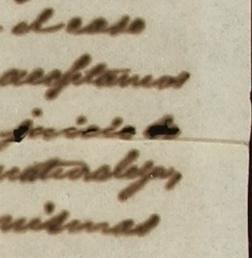 el caso
aceptamos
juicio de
naturaleza,
mismas